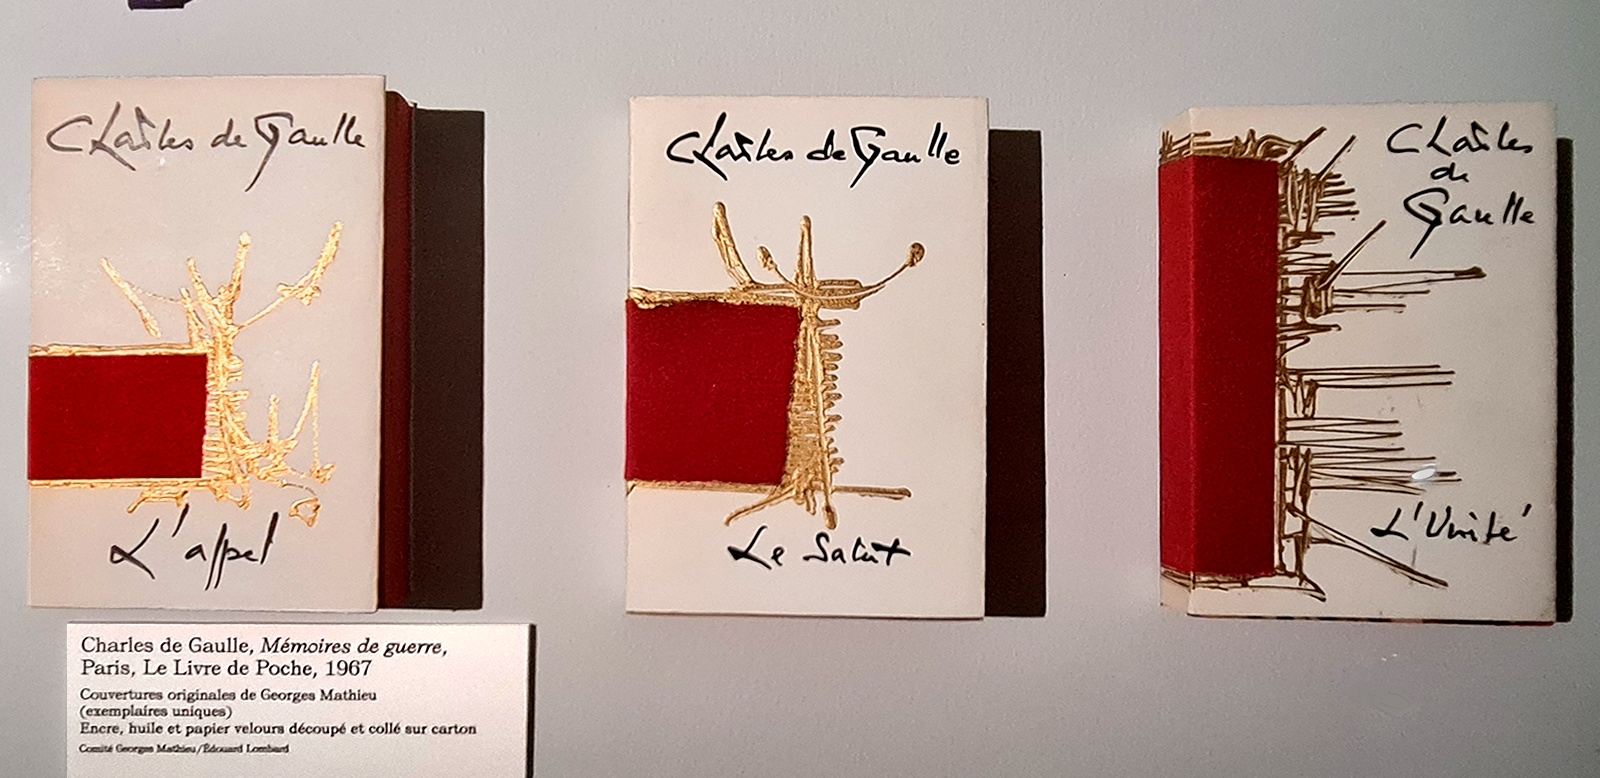 Charles de Gaulle
L'appel
Charles de Gaulle
Le Salut
Charles
de
Gaulle
L'Unité
Charles de Gaulle, Mémoires de guerre,
Paris, Le Livre de Poche, 1967
Couvertures originales de Georges Mathieu
(exemplaires uniques)
Encre, huile et papier velours découpé et collé sur carton
Comité Georges Mathieu/Édouard Lombard